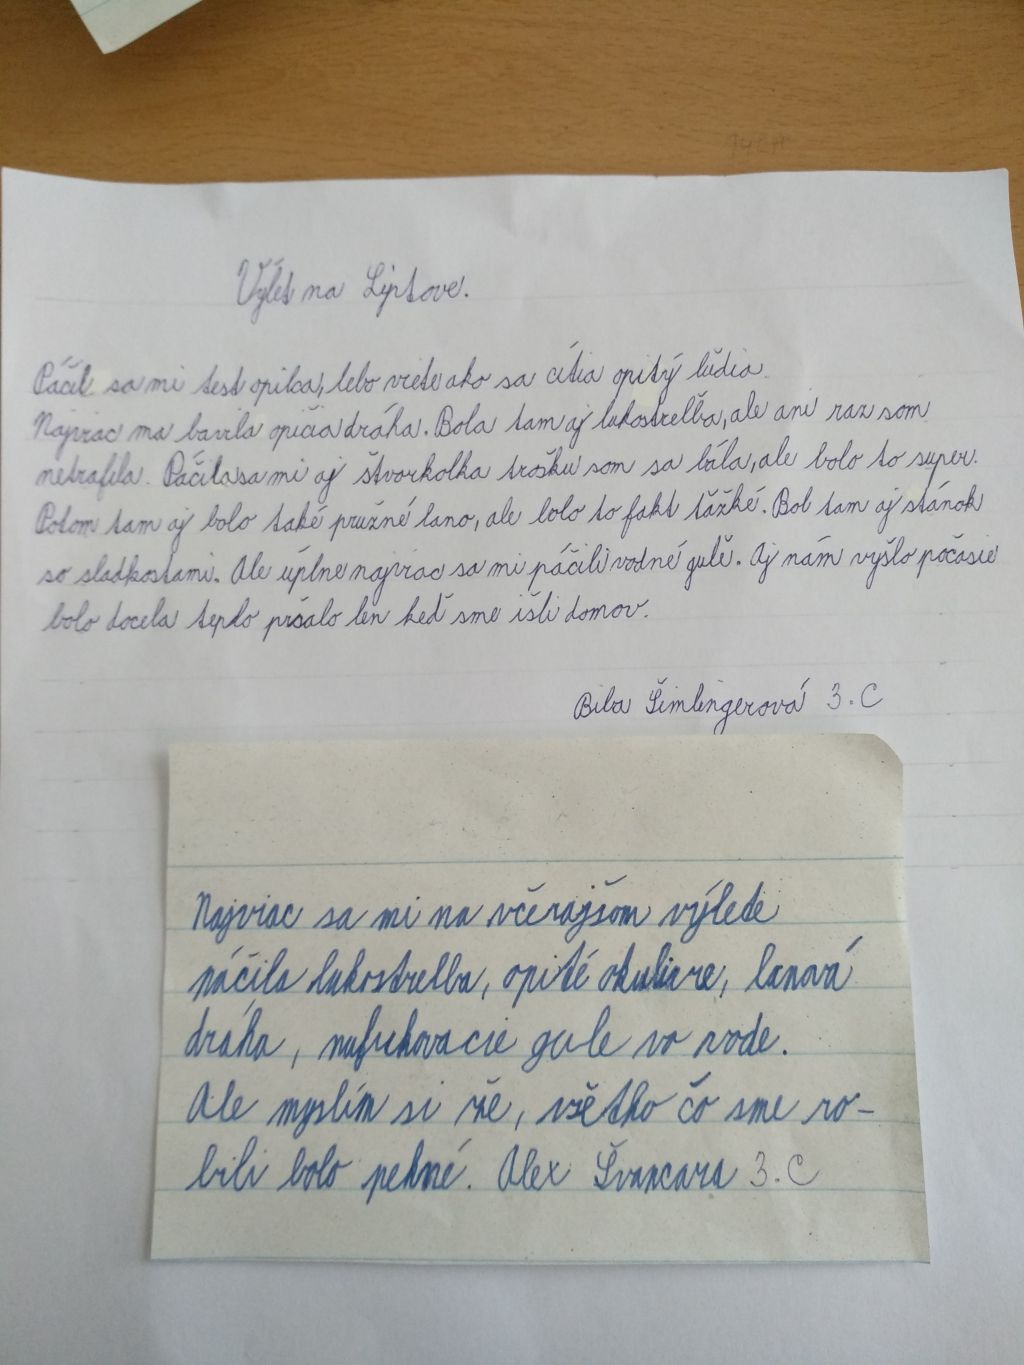 Výlet na Liptove.
Páčil sa mi test opilca, lebo viete ako sa cítia opitý ľudia.
Najviac ma bavila opičia dráha. Bola tam aj lukostreľba, ale ani raz som
netrafila. Páčila sa mi aj štvorkolka trošku som sa bála, ale bolo to super.
Potom tam aj bolo také pružné lano, ale bolo to fakt ťažké. Bol tam aj stánok
so sladkosťami. Ale úplne najviac sa mi páčili vodné guľe. Aj nám vyšlo počasie
bolo docela teplo pršalo len keď sme išli domov.
Biba Šimlingerová 3.C
Najviac sa mi na včerajšom výlede
páčila lukostrelba, opité okuliare, lanová
dráha, nafukovacie gule vo vode.
Ale myslím si že, všetko čo sme ro-
bili bolo pekné. Alex Švancara 3.C